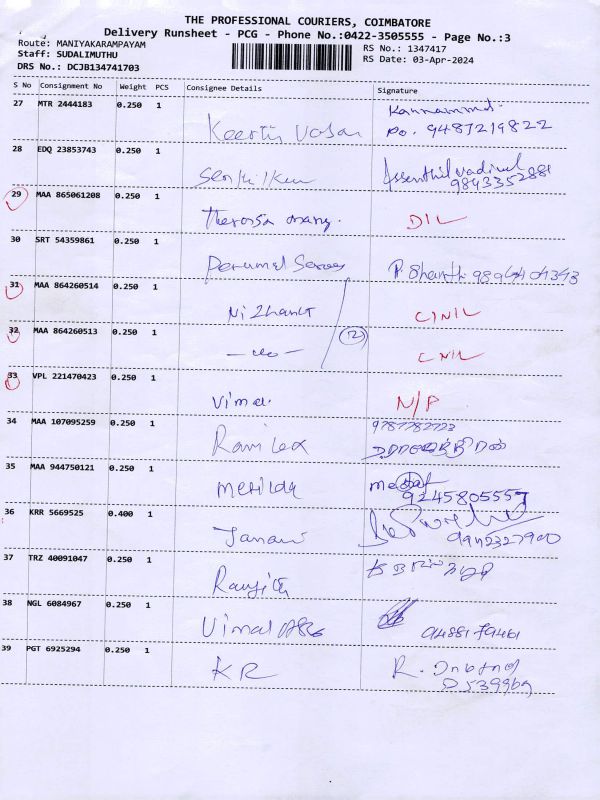 THE PROFESSIONAL COURIERS, COIMBATORE
Delivery Runsheet - PCG - Phone No.:0422-3505555 - Page No.:3
Route: MANIYAKARAMPAYAM
Staff: SUDALIMUTHU
DRS No.: DCJB134741703
RS No.: 1347417
RS Date: 03-Apr-2024
S No Consignment No Weight PCS Consignee Details Signature
27 MTR 2444183 0.250 1 Keerthi Vasan
Po. 9487219822
28 EDQ 23853743 0.250 1
9843352881
29 MAA 865061208 0.250 1 D/L
30 SRT 54359861 0.250 1 P. Shanthi
31 MAA 864260514 0.250 1 Nizhant C/N/L
32 MAA 864260513 0.250 1 — do — (2) C/N/L
33 VPL 221470423 0.250 1 Vimal N/P
34 MAA 107095259 0.250 1 9787782723
35 MAA 944750121 0.250 1 Merilda
9245805557
36 KRR 5669525 0.400 1 Janani
37 TRZ 40091047 0.250 1 Ranjith
38 NGL 6084967 0.250 1 Vimal 9488179461
39 PGT 6925294 0.250 1 KR R.